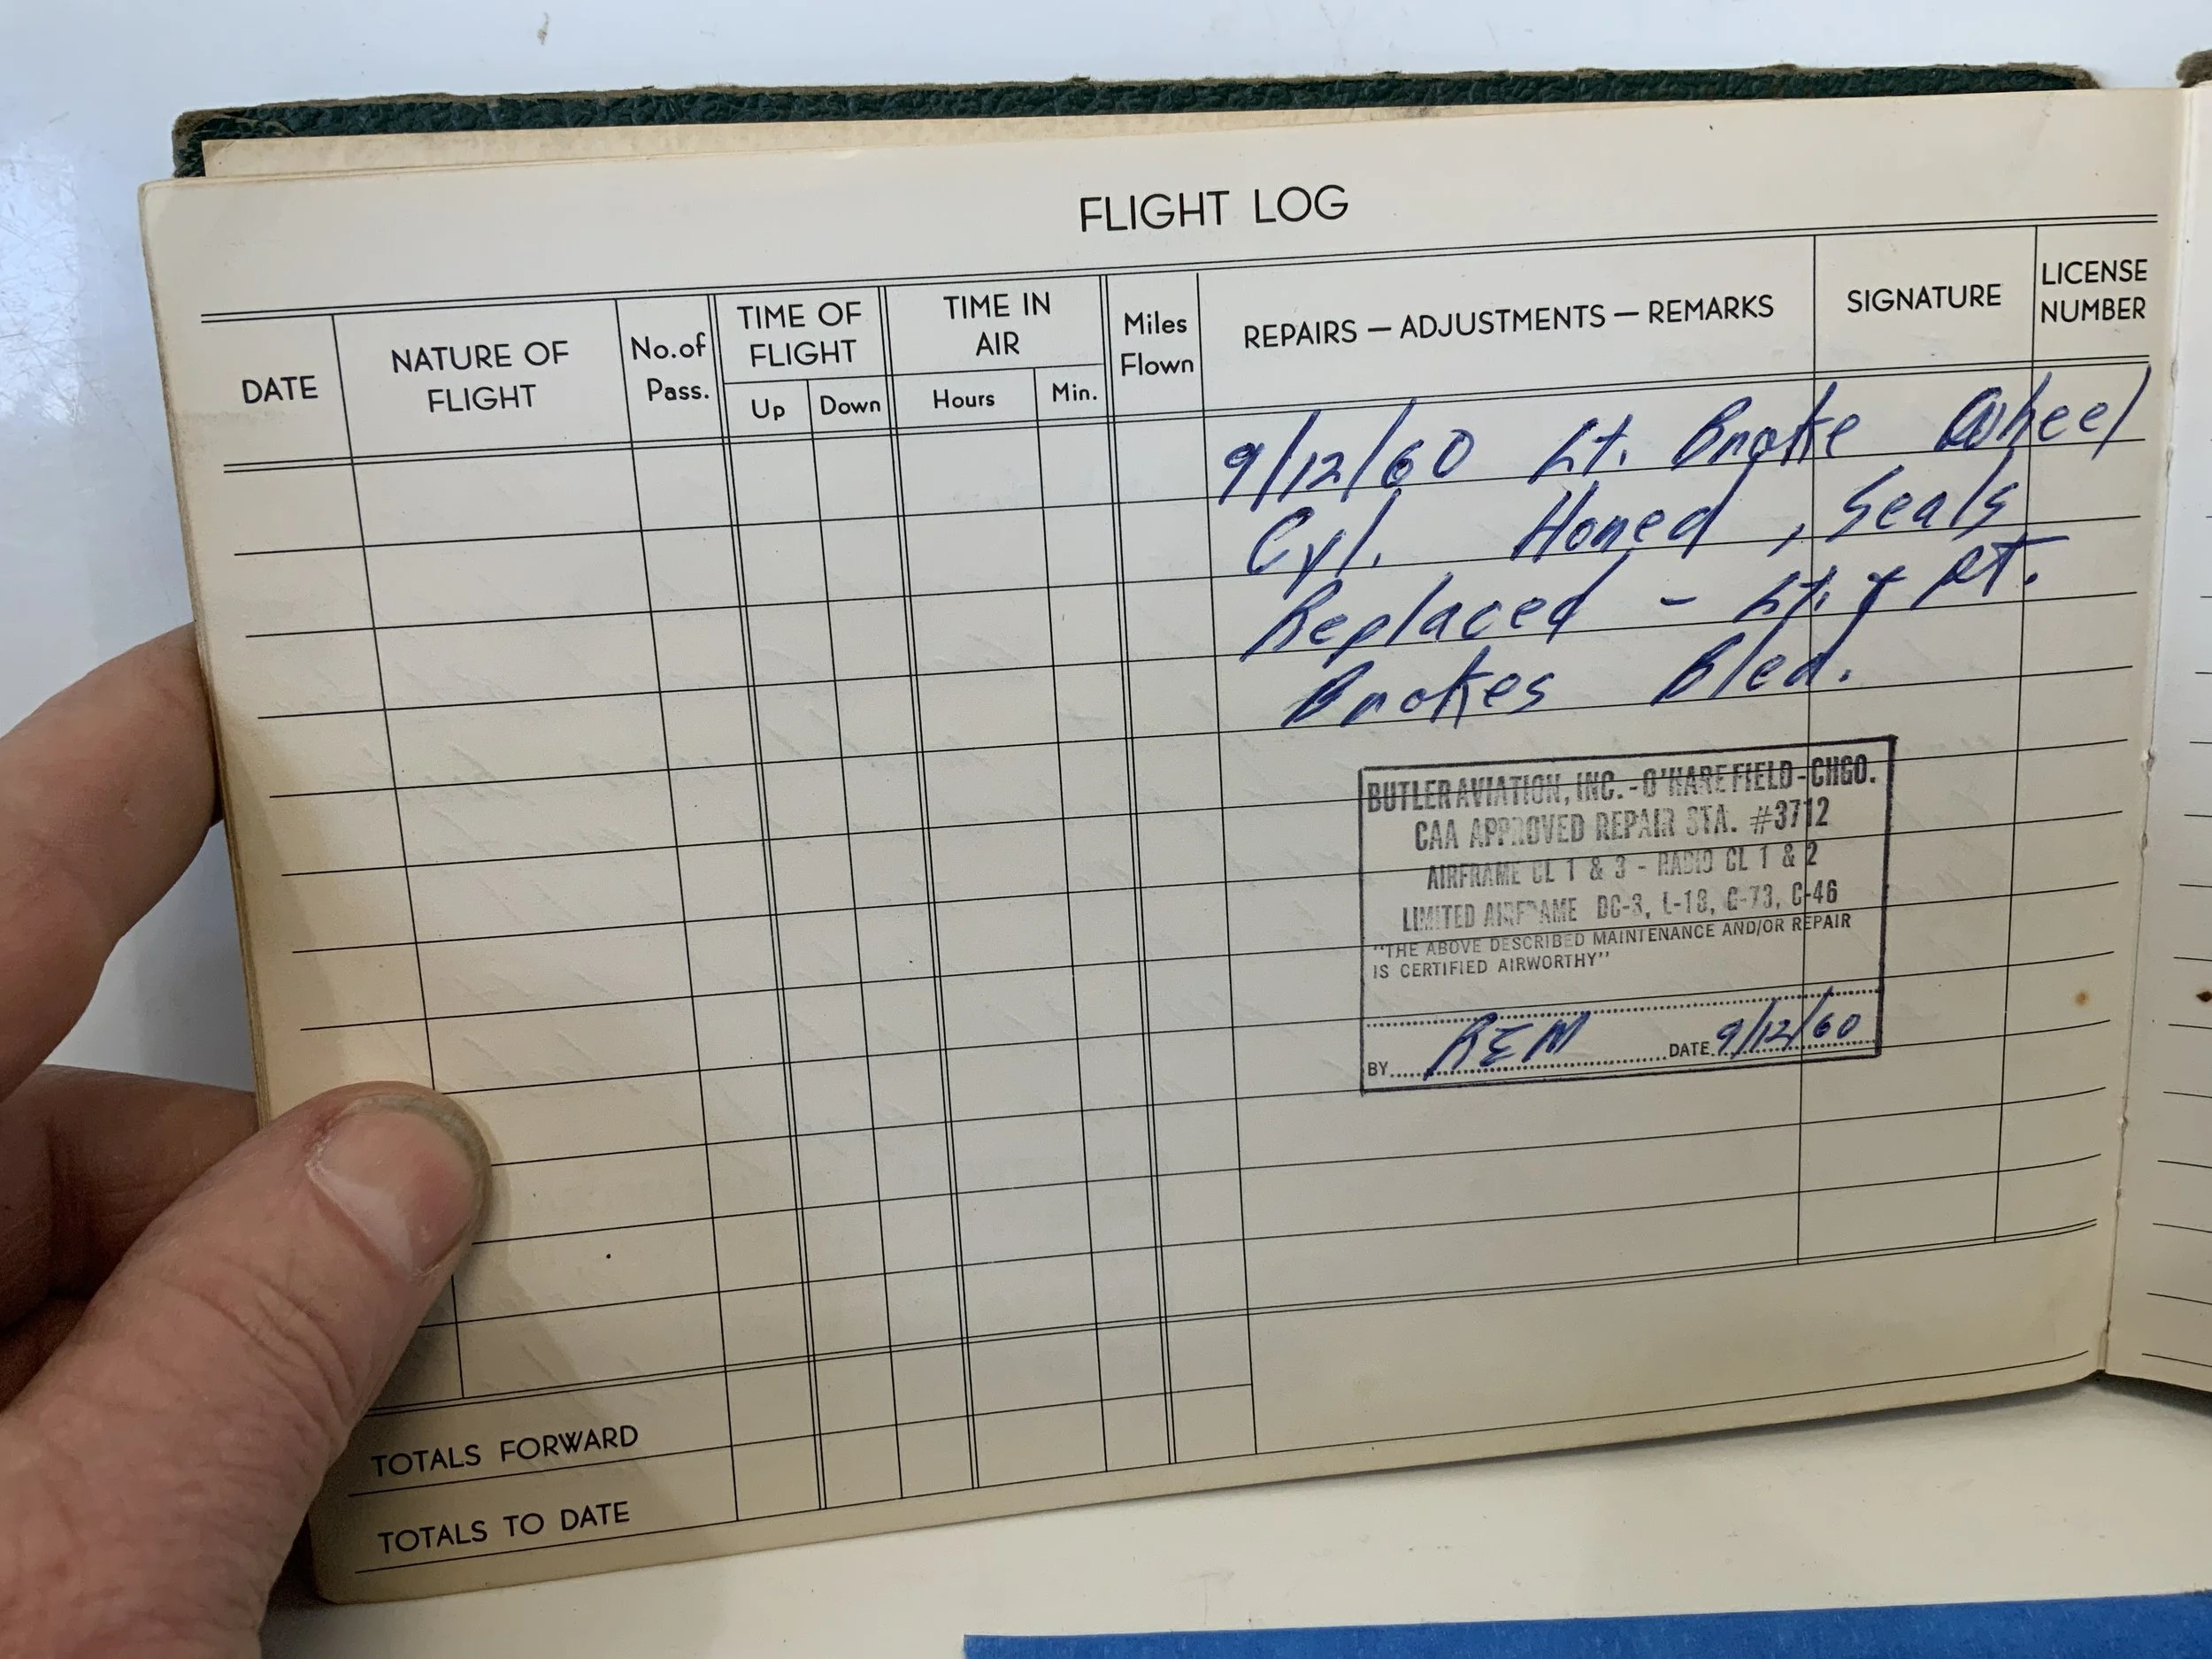 FLIGHT LOG
DATE
NATURE OF
FLIGHT
No.of
Pass.
TIME OF
FLIGHT
Up
Down
TIME IN
AIR
Hours
Min.
Miles
Flown
REPAIRS — ADJUSTMENTS — REMARKS
SIGNATURE
LICENSE
NUMBER
9/12/60 Lt. Brake Wheel
Cyl. Honed, Seals
Replaced - Lt. & Rt.
Brakes Bled.
BUTLER AVIATION, INC. - O'HARE FIELD - CHGO.
CAA APPROVED REPAIR STA. #3712
AIRFRAME CL 1 & 3 - RADIO CL 1 & 2
LIMITED AIRFRAME DC-3, L-18, G-73, C-46
"THE ABOVE DESCRIBED MAINTENANCE AND/OR REPAIR
IS CERTIFIED AIRWORTHY"
BY REM DATE 9/12/60
TOTALS FORWARD
TOTALS TO DATE